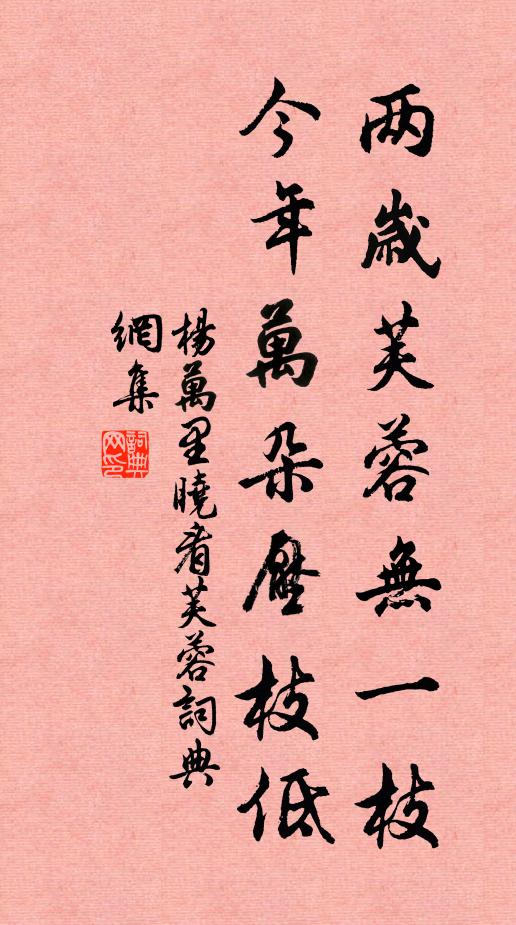 两歳芙蓉無一枝
今年萬朵壓枝低
楊萬里曉看芙蓉詞典
網集
詞典
网印